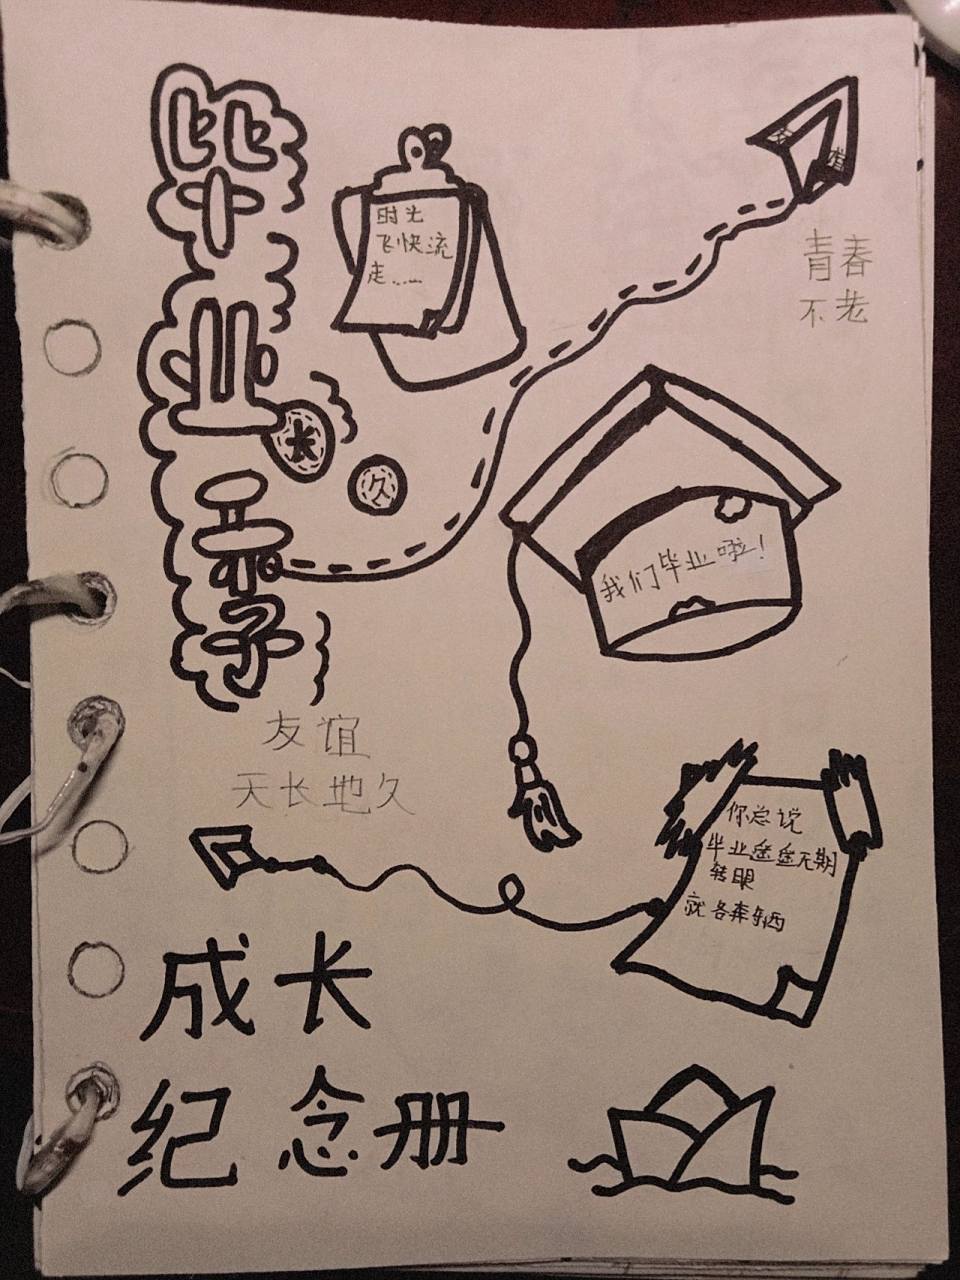 毕业季
时光
飞快流
走……
青春
不老
长
久
我们毕业啦！
友谊
天长地久
你总说
毕业遥遥无期
转眼
就各奔东西
成长
纪念册